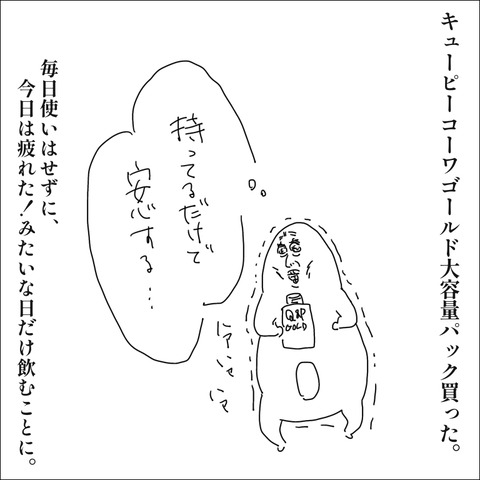 キューピーコーワゴールド大容量パック買った。
持ってるだけで
安心する…
Q&P
GOLD
毎日使いはせずに、
今日は疲れた！みたいな日だけ飲むことに。